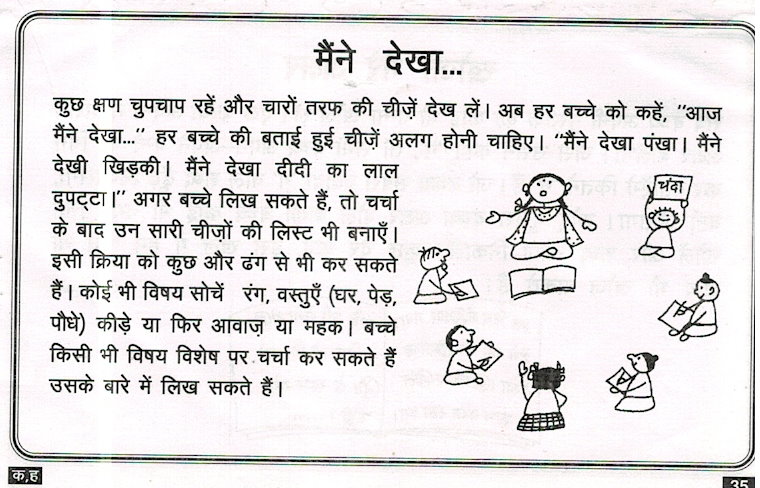 मैंने देखा...
कुछ क्षण चुपचाप रहें और चारों तरफ की चीज़ें देख लें। अब हर बच्चे को कहें, "आज
मैंने देखा..." हर बच्चे की बताई हुई चीज़ें अलग होनी चाहिए। "मैंने देखा पंखा। मैंने
देखी खिड़की। मैंने देखा दीदी का लाल
दुपट्टा।" अगर बच्चे लिख सकते हैं, तो चर्चा
के बाद उन सारी चीज़ों की लिस्ट भी बनाएँ।
इसी क्रिया को कुछ और ढंग से भी कर सकते
हैं। कोई भी विषय सोचें रंग, वस्तुएँ (घर, पेड़,
पौधे) कीड़े या फिर आवाज़ या महक। बच्चे
किसी भी विषय विशेष पर चर्चा कर सकते हैं
उसके बारे में लिख सकते हैं।
चंदा
क,ह
35